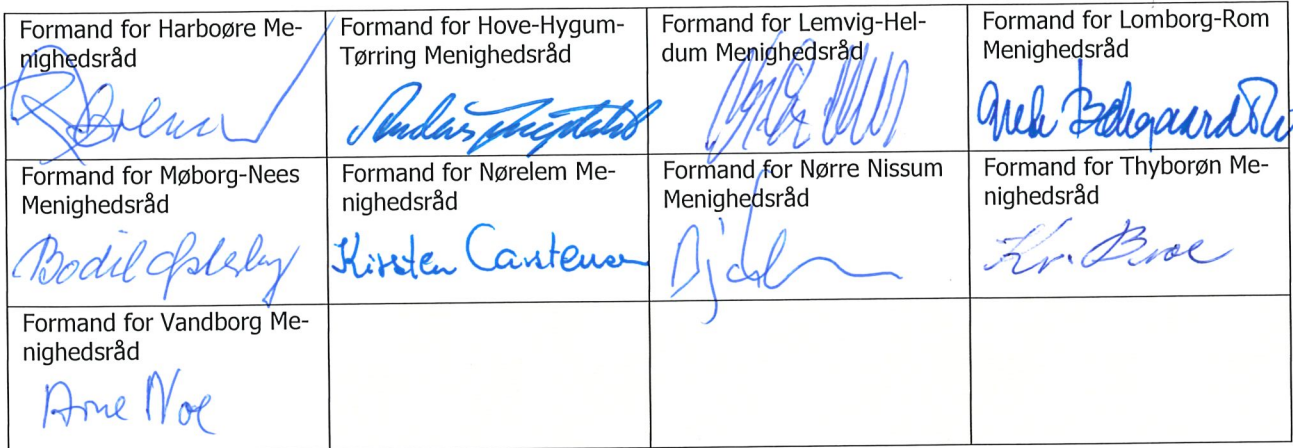 Formand for Harboøre Me-
nighedsråd
Formand for Hove-Hygum-
Tørring Menighedsråd
Anders
Formand for Lemvig-Hel-
dum Menighedsråd
Formand for Lomborg-Rom
Menighedsråd
Formand for Møborg-Nees
Menighedsråd
Bodil Østerby
Formand for Nørelem Me-
nighedsråd
Kirsten Carstensen
Formand for Nørre Nissum
Menighedsråd
Formand for Thyborøn Me-
nighedsråd
Kr. Broe
Formand for Vandborg Me-
nighedsråd
Arne Noe